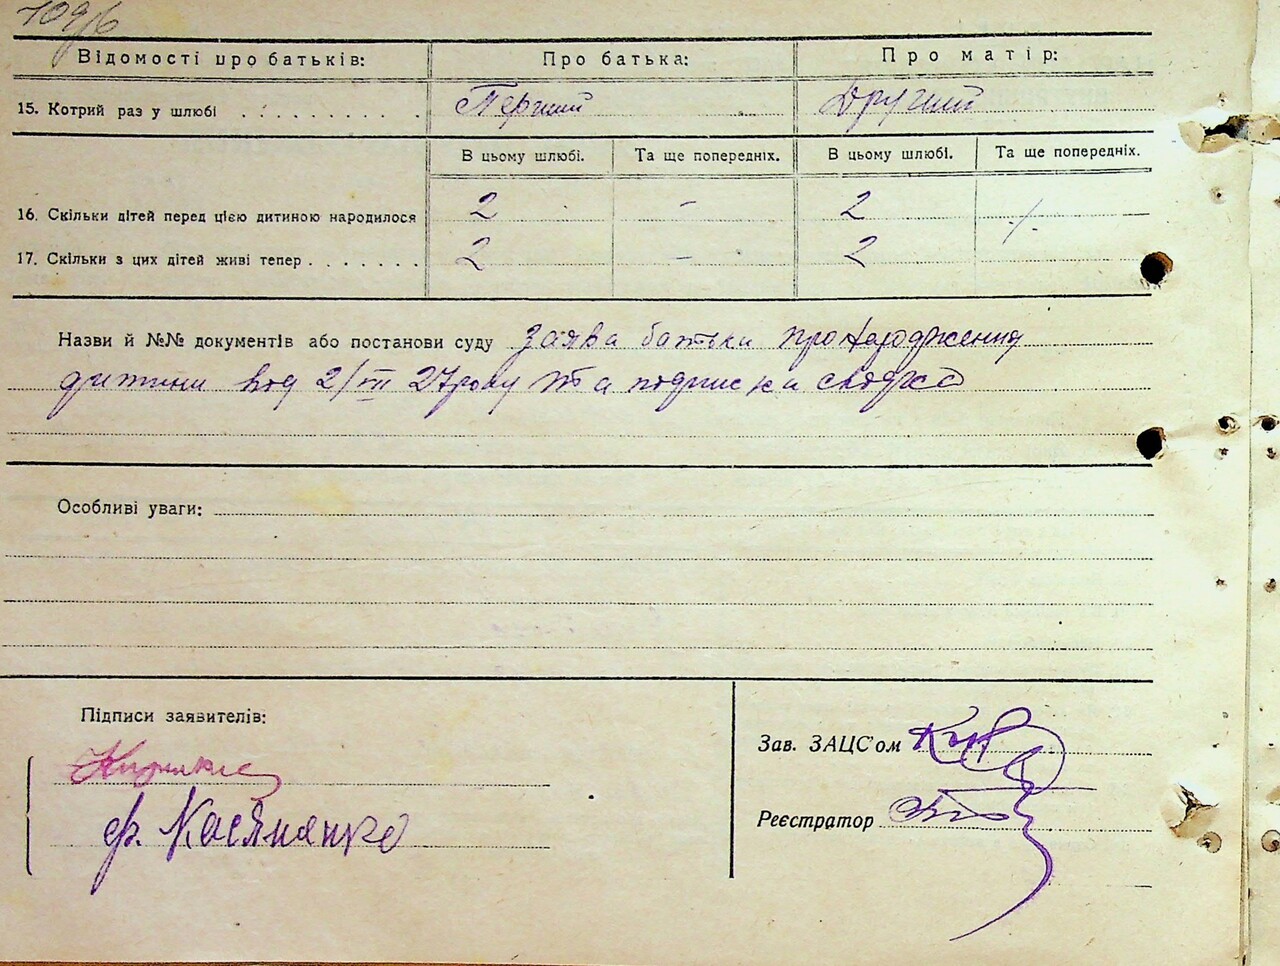 Відомості про батьків: Про батька: Про матір:
15. Котрий раз у шлюбі . . . . . . . . . Перший Другий
В цьому шлюбі. Та ще попередніх. В цьому шлюбі. Та ще попередніх.
16. Скільки дітей перед цією дитиною народилося 2 - 2
17. Скільки з цих дітей живі тепер . . . . . . . 2 - 2
Назви й №№ документів або постанови суду заява батька про народження
дитини від 2/III 27 року та подписка
Особливі уваги:
Підписи заявителів:
Зав. ЗАЦС'ом
Реєстратор
ф. Касяненко